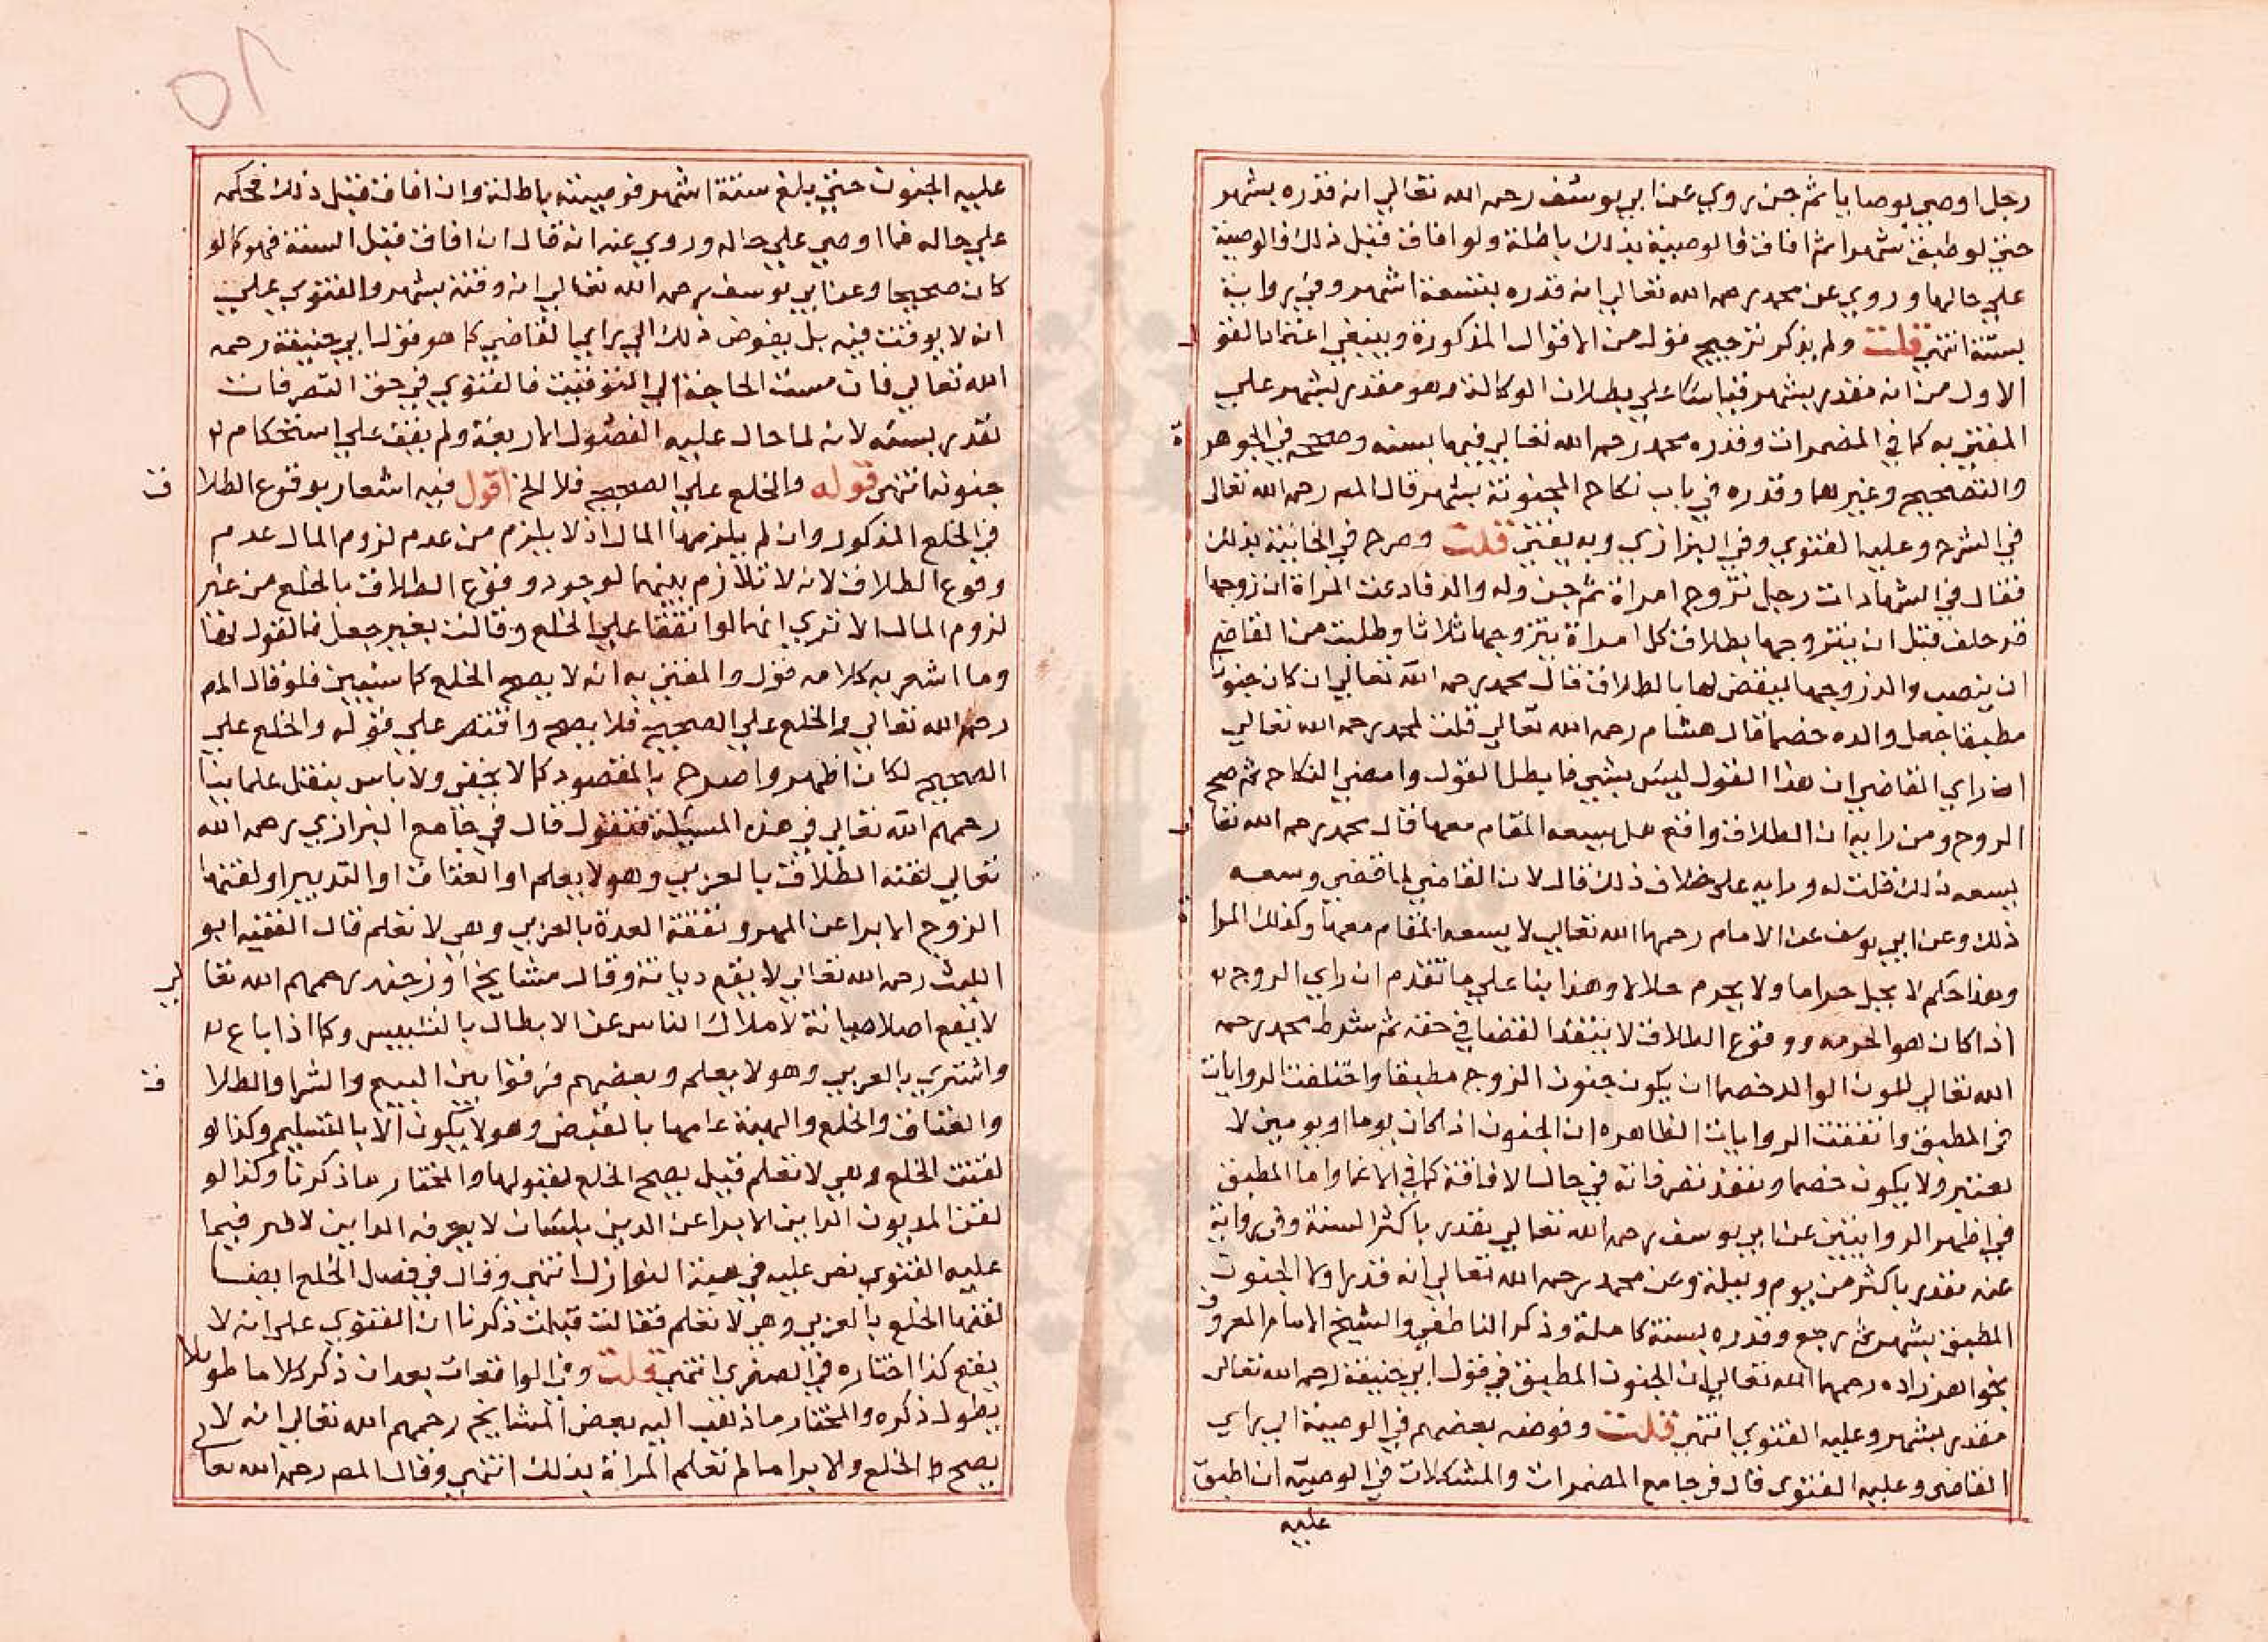 رجل اوصي بوصايا ثم جن روي عن ابي يوسف رحمه الله تعالي انه قدره بشهر
حتي لو طبق شهرا ثم افاق فالوصية بذلك باطلة ولو افاق قبل ذلك فالوصية
علي حالها وروي عن محمد رحمه الله تعالي انه قدره بتسعة اشهر وفي رواية
بستة انتهي قلت ولم يذكر ترجيح قول من الاقوال المذكورة وينبغي اعتماد القو
ل
الاول من انه مقدر بشهر قياسا علي بطلان الوكالة وهو مقدر بشهر علي
المفتي به كما في المضمرات وقدره محمد رحمه الله تعالي فيهما بسنه وصححه في الجوهر
ة
والتصحيح وغيرهما وقدره في باب نكاح المجنونة بشهر قال المص رحمه الله تعالى
في الشرح وعليه الفتوي وفي البزازي وبه يفتي قلت وصرح في الخانية بذلك
فقال في الشهادات رجل تزوج امراة ثم جن وله والد فادعت المراة ان زوجها
قد حلف قبل ان يتزوجها بطلاق كل امراة يتزوجها ثلاثا وطلبت من القاضي
ان ينصب والد زوجها ليقضي لها بالطلاق قال محمد رحمه الله تعالي ان كان جنونه
مطبقا جعل والده خصما قال هشام رحمه الله تعالي قلت لمحمد رحمه الله تعالي
ان راي القاضي ان هذا القول ليس بشي فابطل القول وامضي النكاح ثم صح
الزوج ومن رايه ان الطلاق واقع هل يسعه المقام معها قال محمد رحمه الله تعا
لي
يسعه ذلك قلت له ورايه علي خلاف ذلك قال لان القاضي لما قضي وسعه
ذلك وعن ابي يوسف عن الامام رحمهما الله تعالي لا يسعه المقام معها وكذلك المرا
ة
وهذا حكم لا يحل حراما ولا يحرم حلالا وهذا بنا علي ما تقدم ان راي الزوج
اذا كان هو الحرمه ووقوع الطلاق لا ينفذ القضا في حقه ثم شرط محمد رحمه
الله تعالي لكون الوالد خصما ان يكون جنون الزوج مطبقا واختلفت الروايات
في المطبق واتفقت الروايات الظاهره ان الجنون اذا كان يوما او يومين لا
يعتبر ولا يكون خصما وينفذ تصرفاته في حالة الافاقة كما في الاغما واما المطبق
في اظهر الروايتين عن ابي يوسف رحمه الله تعالي يقدر باكثر السنة وفي رواية
عنه يقدر باكثر من يوم وليلة وعن محمد رحمه الله تعالي انه قدر اولا الجنون
المطبق بشهر ثم رجع وقدره بسنة كاملة وذكر الناطفي والشيخ الامام المعرو
ف
بخواهر زاده رحمهما الله تعالي ان الجنون المطبق في قول ابي حنيفة رحمه الله تعالي
مقدر بشهر وعليه الفتوي انتهي قلت وفوضه بعضهم في الوصية الي راي
القاضي وعليه الفتوى قال في جامع المضمرات والمشكلات في الوصية ان اطبق
عليه
عليه الجنون حتي بلغ ستة اشهر فوصيته باطلة وان افاق قبل ذلك فحكمه
علي حاله فما اوصي علي حاله وروي عنه انه قال ان افاق قبل السنة فهو كما لو
كان صحيحا وعن ابي يوسف رحمه الله تعالي انه وقته بشهر والفتوي علي
انه لا يوقت فيه بل يفوض ذلك الي راي القاضي كما هو قول ابي حنيفة رحمه
الله تعالي فان مست الحاجة الي التوقيت فالفتوي في حق التصرفات
تقدر بسنه لانه لما حال عليه الفصول الاربعة ولم يفق علي استحكام
جنونه انتهي قوله والخلع علي الصحيح فلا الخ اقول فيه اشعار بوقوع الطلا
ق
في الخلع المذكور وان لم يلزمها المال اذ لا يلزم من عدم لزوم المال عدم
وقوع الطلاق لانه لا تلازم بينهما لوجود وقوع الطلاق بالخلع من غير
لزوم المال الا تري انهما لو اتفقا علي الخلع وقالت بغير جعل فالقول لها
وما اشعر به كلامه قول والمفتي به انه لا يصح الخلع كما سنبين فلو قال المص
رحمه الله تعالي والخلع علي الصحيح فلا يصح واقتصر علي قوله والخلع علي
الصحيح لكان اظهر واصرح بالمقصود كما لا يخفي ولا باس بنقل علماينا
رحمهم الله تعالي في هذه المسئلة فنقول قال في جامع البزازي رحمه الله
تعالي لقنه الطلاق بالعربي وهو لا يعلم او العتاق او التدبير او لقنها
الزوج الابرا عن المهر ونفقة العدة بالعربي وهي لا تعلم قال الفقيه ابو
الليث رحمه الله تعالي لا يقع ديانة وقال مشايخ اوزجند رحمهم الله تعا
لي
لا يقع اصلا صيانة لاملاك الناس عن الابطال بالتلبيس وكما اذا باع
واشتري بالعربي وهو لا يعلم وبعضهم فرقوا بين البيع والشرا والطلا
ق
والعتاق والخلع والهبة تمامها بالقبض وهو لا يكون الا بالتسليم وكذا لو
لقنت الخلع وهي لا تعلم قيل يصح الخلع لقبولها والمختار ما ذكرنا وكذا لو
لقن المديون الداين الابرا عن الدين بلسان لا يعرفه الداين لا يبرا فيما
عليه الفتوي نص عليه في هبة النوازل انتهي وقال في فصل الخلع ايضا
لقنها الخلع بالعربي وهي لا تعلم فقالت قبلت ذكرنا ان الفتوي علي انه لا
يقع كذا اختاره في الصغري انتهي قلت وفي الواقعات بعد ان ذكر كلاما طو
يلا
يطول ذكره والمختار ما ذهب اليه بعض المشايخ رحمهم الله تعالي انه لا
يصح الخلع ولا يبرا ما لم تعلم المراة بذلك انتهي وقال المص رحمه الله تعالي